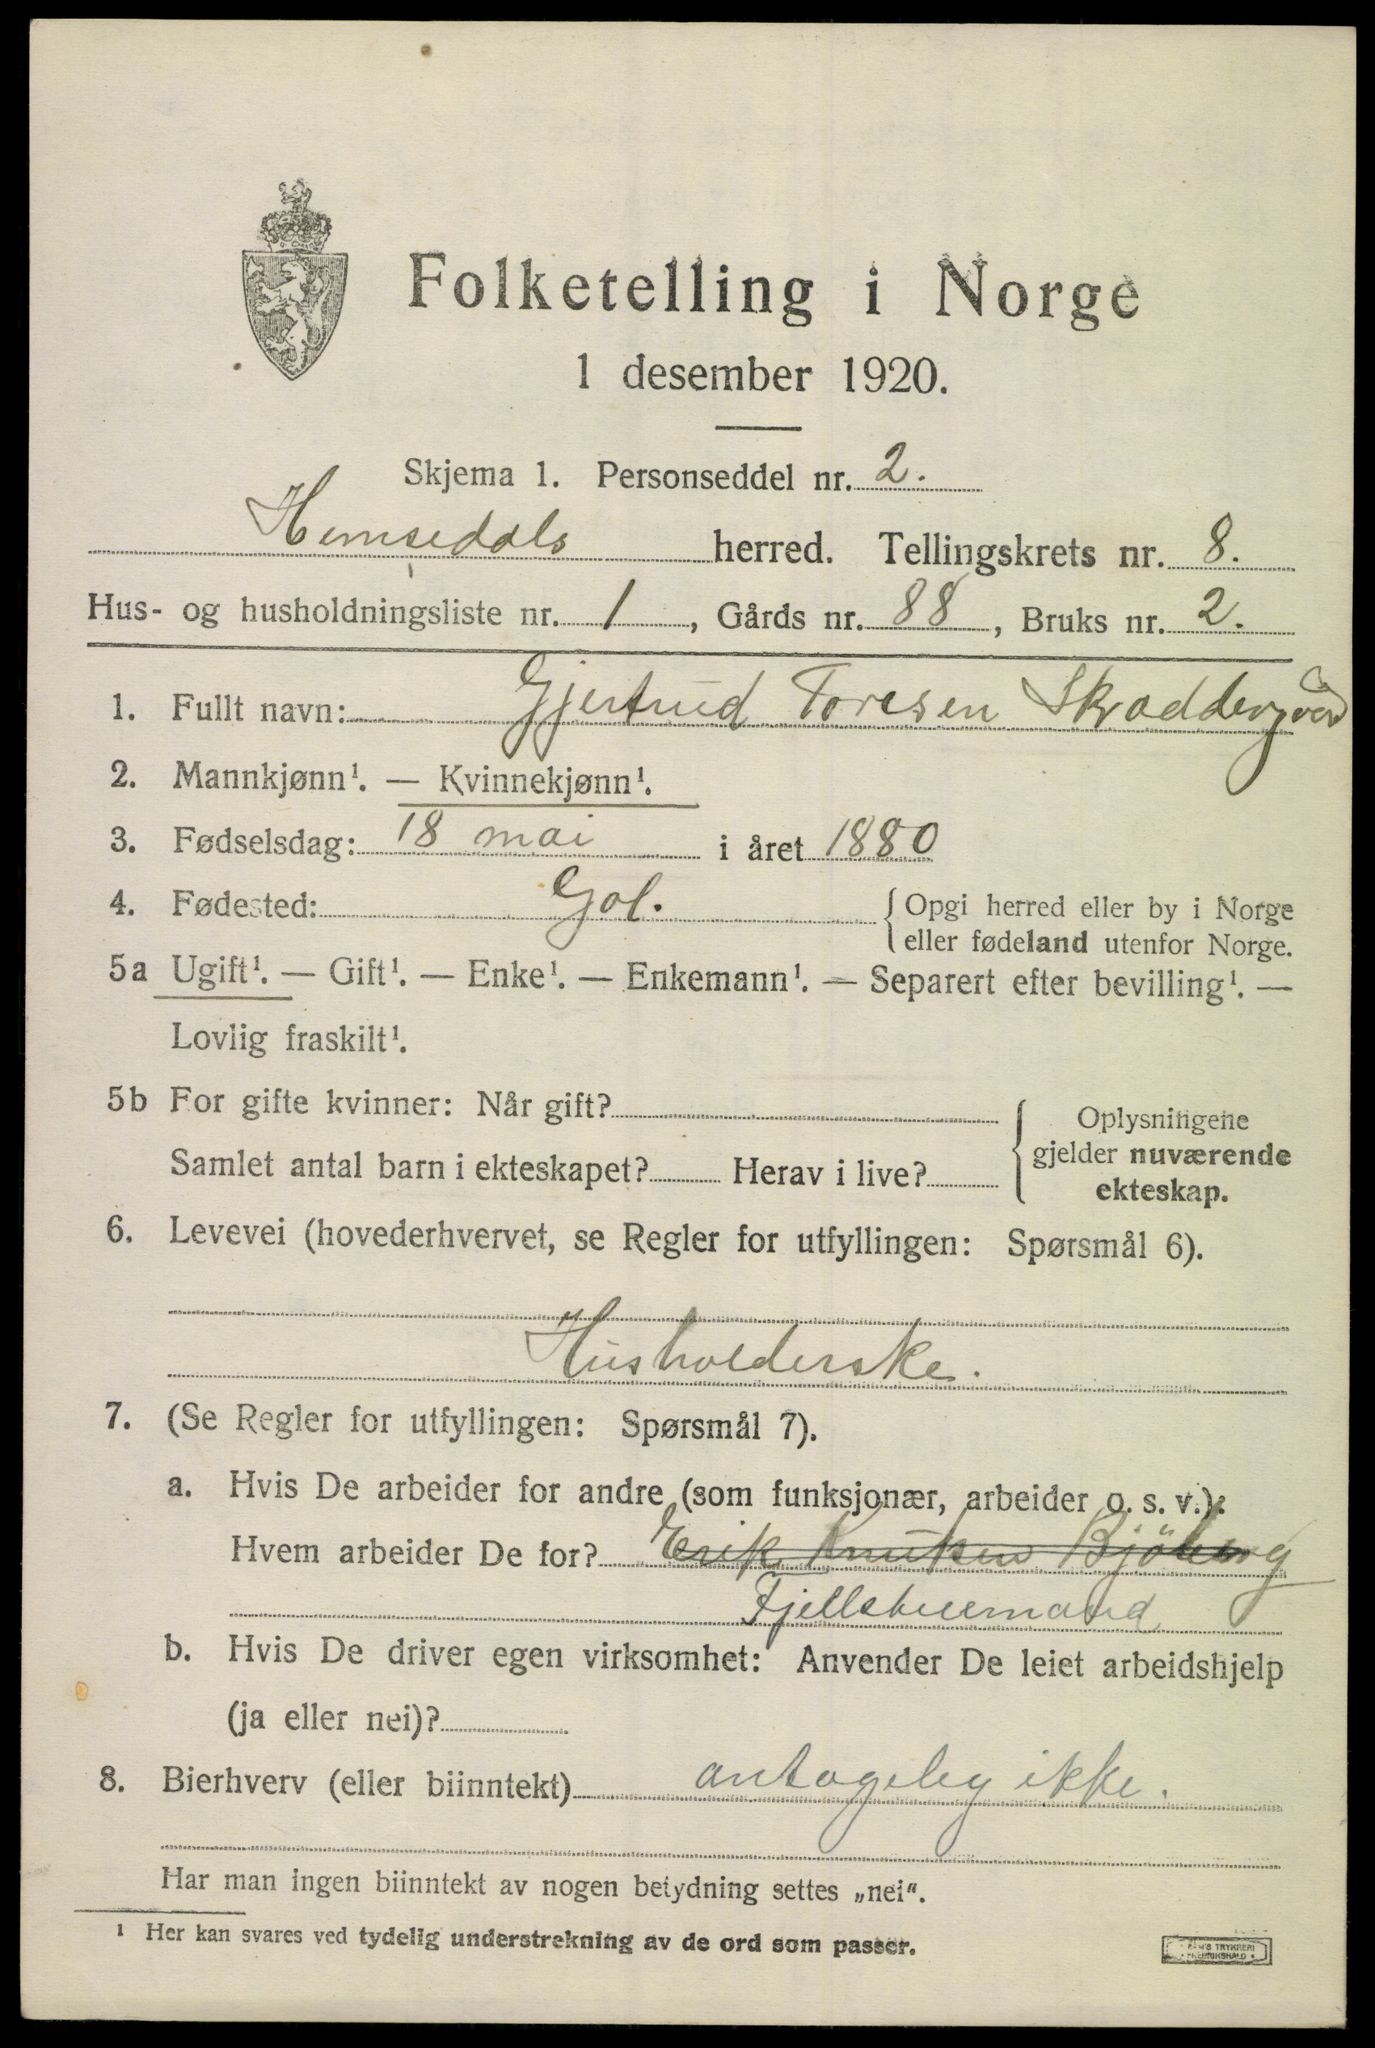 Folketelling i Norge
1 desember 1920.
Skjema 1. Personseddel nr. 2.
Hemsedals herred. Tellingskrets nr. 8.
Hus- og husholdningsliste nr. 1, Gårds nr. 88, Bruks nr. 2.
1. Fullt navn: Gjertrud Toresen Skraddergård
2. Mannkjønn¹. — Kvinnekjønn¹.
3. Fødselsdag: 18 mai i året 1880
4. Fødested: Gol. { Opgi herred eller by i Norge
eller fødeland utenfor Norge.
5a Ugift¹. — Gift¹. — Enke¹. — Enkemann¹. — Separert efter bevilling¹. —
Lovlig fraskilt¹.
5b For gifte kvinner: Når gift?
Samlet antal barn i ekteskapet? Herav i live?
{ Oplysningene
gjelder nuværende
ekteskap.
6. Levevei (hovederhvervet, se Regler for utfyllingen: Spørsmål 6).
Husholderske.
7. (Se Regler for utfyllingen: Spørsmål 7).
a. Hvis De arbeider for andre (som funksjonær, arbeider o. s. v.):
Hvem arbeider De for? Erik Knutsen Bjöberg
Fjellstuemand
b. Hvis De driver egen virksomhet: Anvender De leiet arbeidshjelp
(ja eller nei)?
8. Bierhverv (eller biinntekt) antageleg ikke.
Har man ingen biinntekt av nogen betydning settes „nei“.
¹ Her kan svares ved tydelig understrekning av de ord som passer.
TRYKKERI
FREDRIKSHALD